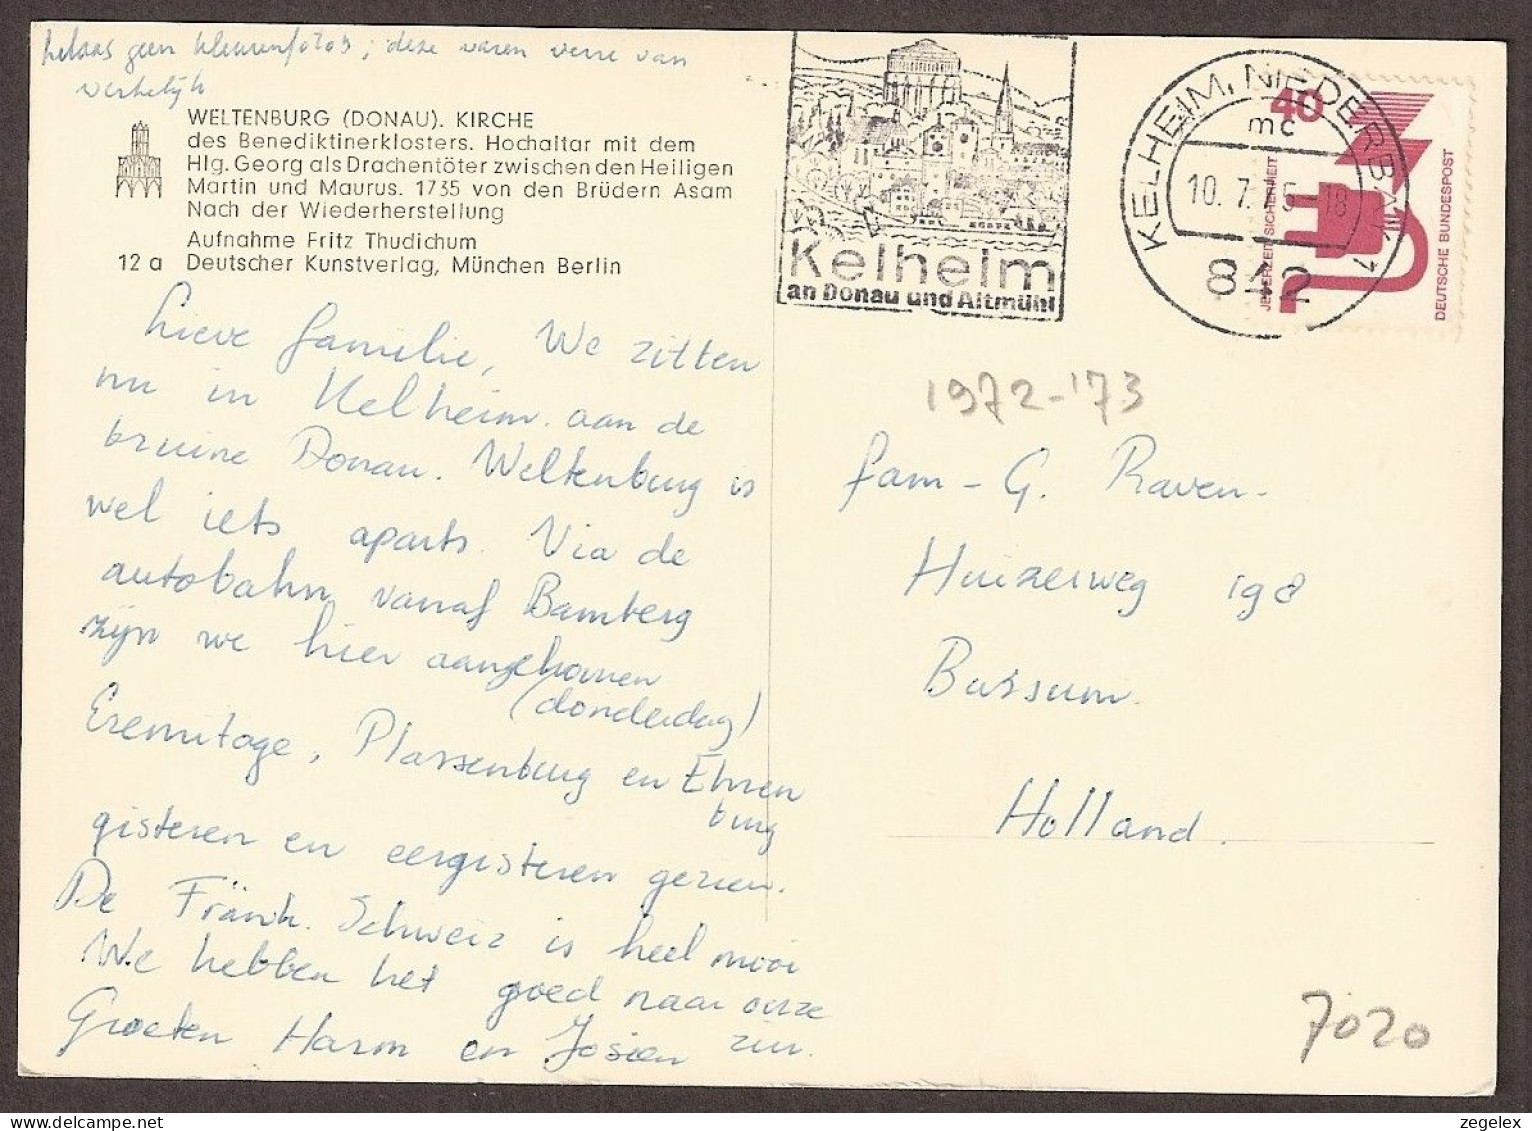 helaas geen kleurenfoto's ; deze waren verre van
werkelijk
WELTENBURG (DONAU). KIRCHE
des Benediktinerklosters. Hochaltar mit dem
Hlg. Georg als Drachentöter zwischen den Heiligen
Martin und Maurus. 1735 von den Brüdern Asam
Nach der Wiederherstellung
Aufnahme Fritz Thudichum
12 a Deutscher Kunstverlag, München Berlin
Lieve familie, We zitten
nu in Kelheim aan de
bruine Donau. Weltenburg is
wel iets aparts. Via de
autobahn vanaf Bamberg
zijn we hier aangekomen
(donderdag)
Eremitage, Plassenburg en Ehren
burg
gisteren en eergisteren gezien.
De Fränk. Schweiz is heel mooi
We hebben het goed naar onze
zin.
Groeten Harm en Josien
Kelheim
an Donau und Altmühl
KELHEIM, NIEDERBAY 1
mc
10. 7. 5 - 18
842
40
JEDERZEIT SICHERHEIT
DEUTSCHE BUNDESPOST
1972-'73
fam - G. Raven -
Huizerweg 198
Bussum
Holland.
7020
zegelex